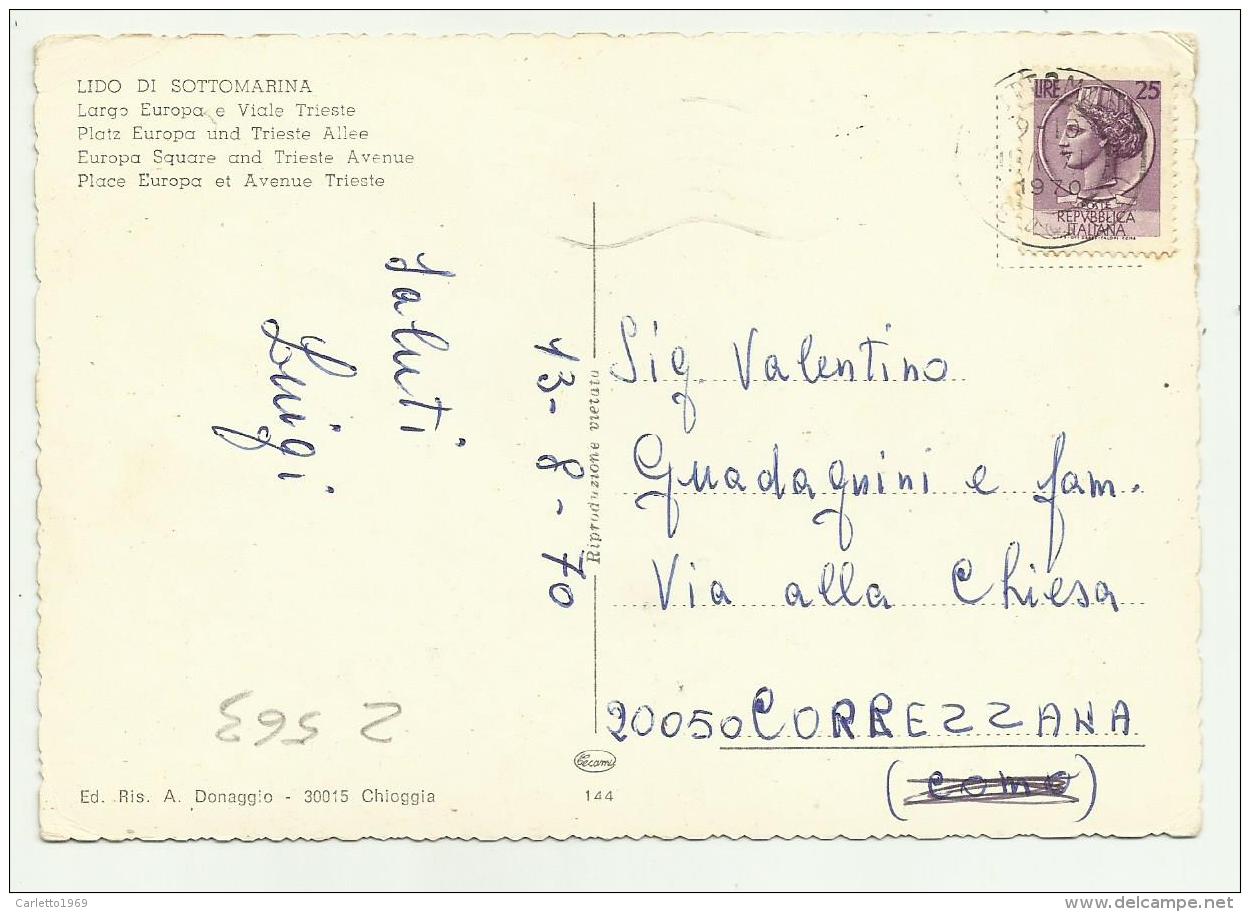 LIDO DI SOTTOMARINA
Largo Europa e Viale Trieste
Platz Europa und Trieste Allee
Europa Square and Trieste Avenue
Place Europa et Avenue Trieste
LIRE 25
1970
POSTE
REPVBBLICA
ITALIANA
Saluti
Luigi
13-8-70
Riproduzione vietata
Sig. Valentino
Guadagnini e fam.
Via alla Chiesa
20050 CORREZZANA
(como)
Z 563
Cecami
Ed. Ris. A. Donaggio - 30015 Chioggia
144
Carletto1969
www.delcampe.net